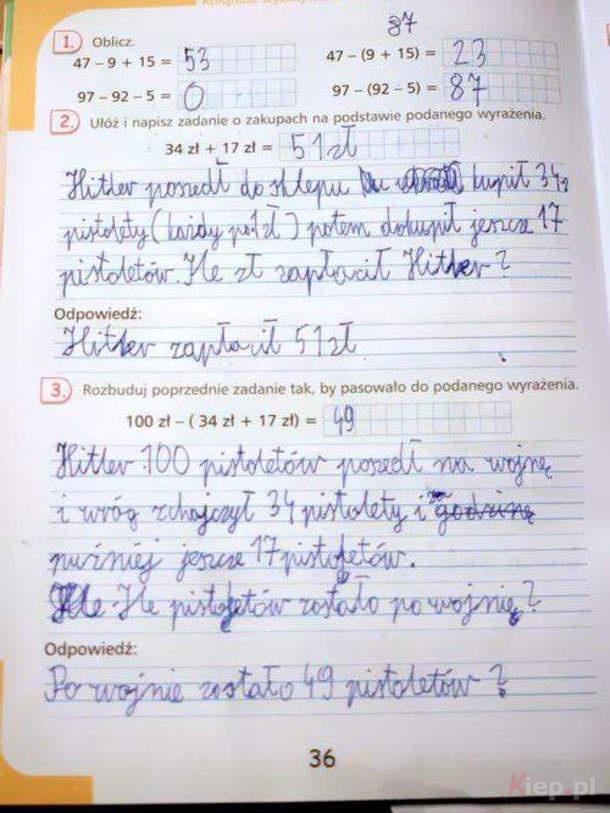 37
1. Oblicz.
47 – 9 + 15 = 53 47 – (9 + 15) = 23
97 – 92 – 5 = 0 97 – (92 – 5) = 87
2. Ułóż i napisz zadanie o zakupach na podstawie podanego wyrażenia.
34 zł + 17 zł = 51 zł
Hitler poszedł do sklepu kupił 34
pistolety (każdy po 1 zł) potem dokupił jeszcze 17
pistoletów. Ile zł zapłacił Hitler?
Odpowiedź:
Hitler zapłacił 51 zł
3. Rozbuduj poprzednie zadanie tak, by pasowało do podanego wyrażenia.
100 zł – ( 34 zł + 17 zł) = 49
Hitler 100 pistoletów poszedł na wojnę
i wróg zhajczył 34 pistolety i godzinę
puźniej jeszcze 17 pistoletów.
Ile pistoletów zostało po wojnie?
Odpowiedź:
Po wojnie zostało 49 pistoletów?
36
Kiep.pl